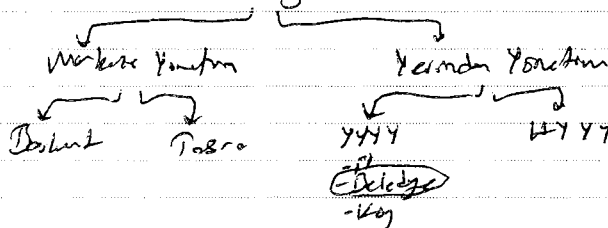 Merkezi Yönetim Yerinden Yönetim
Başkent Taşra YYYY HYYY
- İl
- Belediye
- Köy